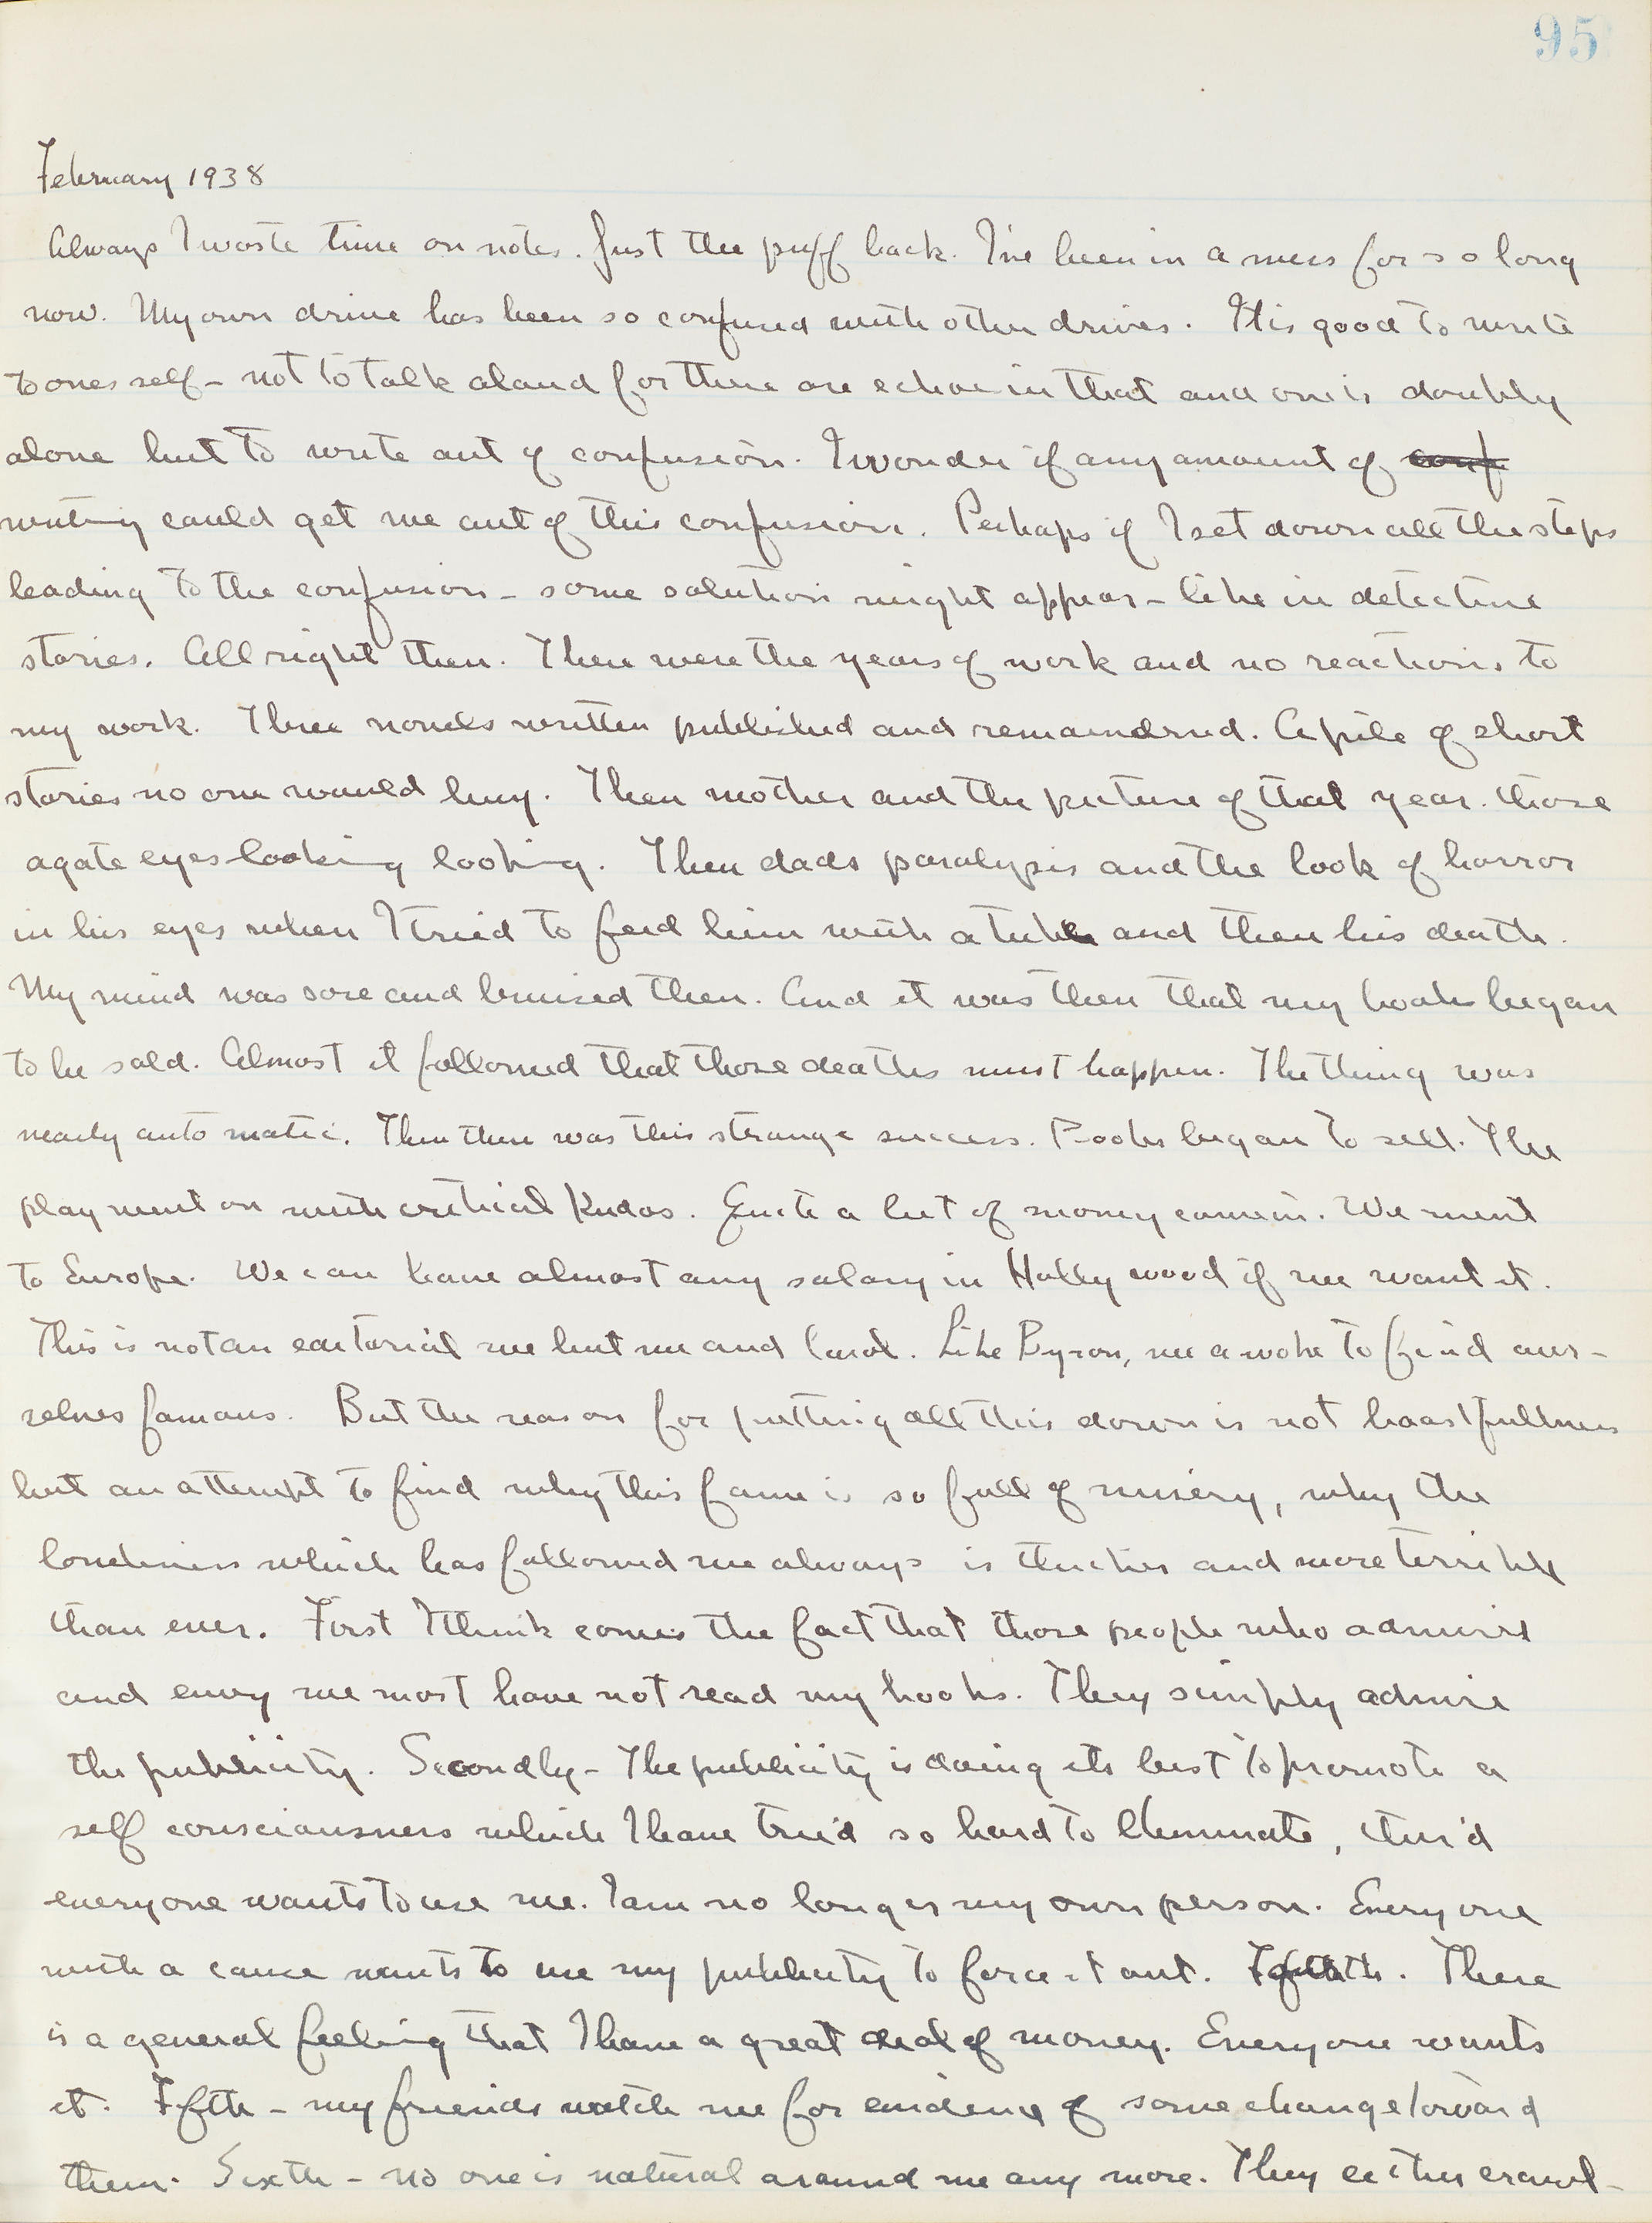 95
February 1938
Always I waste time on notes. Just the puff back. I've been in a mess for so long
now. My own drive has been so confused with other drives. It is good to write
to ones self – not to talk aloud for there are echoe in that and one is doubly
alone but to write out of confusion. I wonder if any amount of conf
writing could get me out of this confusion. Perhaps if I set down all the steps
leading to the confusion – some solution might appear – like in detective
stories. All right then. There were the years of work and no reactions to
my work. Three novels written published and remaindered. A pile of short
stories no one would buy. Then mother and the picture of that year. those
agate eyes looking looking. Then dads paralysis and the look of horror
in his eyes when I tried to feed him with a tube and then his death.
My mind was sore and bruised then. And it was then that my books began
to be sold. Almost it followed that those deaths must happen. The thing was
nearly auto matic. Then there was this strange success. Books began to sell. The
play went on with critical Kudos. Quite a lot of money came in. We went
to Europe. We can have almost any salary in Holly wood if we want it.
This is not an editorial we but me and Carol. Like Byron, we awoke to find our-
selves famous. But the reason for putting all this down is not boastfullness
but an attempt to find why this fame is so full of misery, why the
loneliness which has followed me always is thicker and more terrible
than ever. First I think comes the fact that those people who admire
and envy me most have not read my books. They simply admire
the publicity. Secondly – The publicity is doing its best to promote a
self consciousness which I have tried so hard to illuminate, third
everyone wants to use me. I am no longer my own person. Every one
with a cause wants to use my publicity to force it out. Fourth. There
is a general feeling that I have a great deal of money. Everyone wants
it. Fifth – my friends watch me for evidence of some change toward
them. Sixth – no one is natural around me any more. They either crawl –